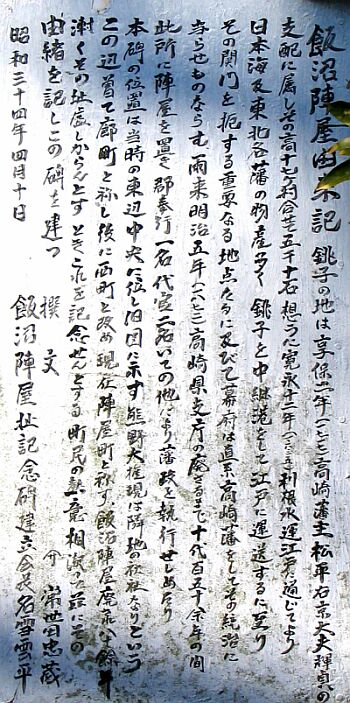 飯沼陣屋由来記 銚子の地は享保二年(一七一七)高崎藩主松平右京大夫輝貞の
支配に属しその高十七ケ村合せて五千石 想うに寛永十一年(一六三四)利根水運江戸に通じてより
日本海及東北各藩の物産多く 銚子を中継港として江戸に運送するに至り
その関門を扼する重要なる地点たるに及びて幕府は直系高崎藩をしてその統治に
当らせものならむ 爾来明治五年(一八七二)高崎県支庁の廃さるまで十代百五十余年の間
此所に陣屋を置き 郡奉行一名代官二名いての地により藩政を執行せしめたり
本碑の位置は当時の東辺中央に位し旧図に示す熊野大権現は隣地の社祉なりという
この辺曽て廓町と称し後に西町と改め現在陣屋町と称す 飯沼陣屋廃れ八余年
漸くその址庋しからんとす ときこれを記念せんとする町民の熱意相湊り茲にその
由緒を記しこの碑を建つ
昭和三十四年四月十日
撰文 常世田忠蔵
飯沼陣屋址記念碑建立会長名雪雲平